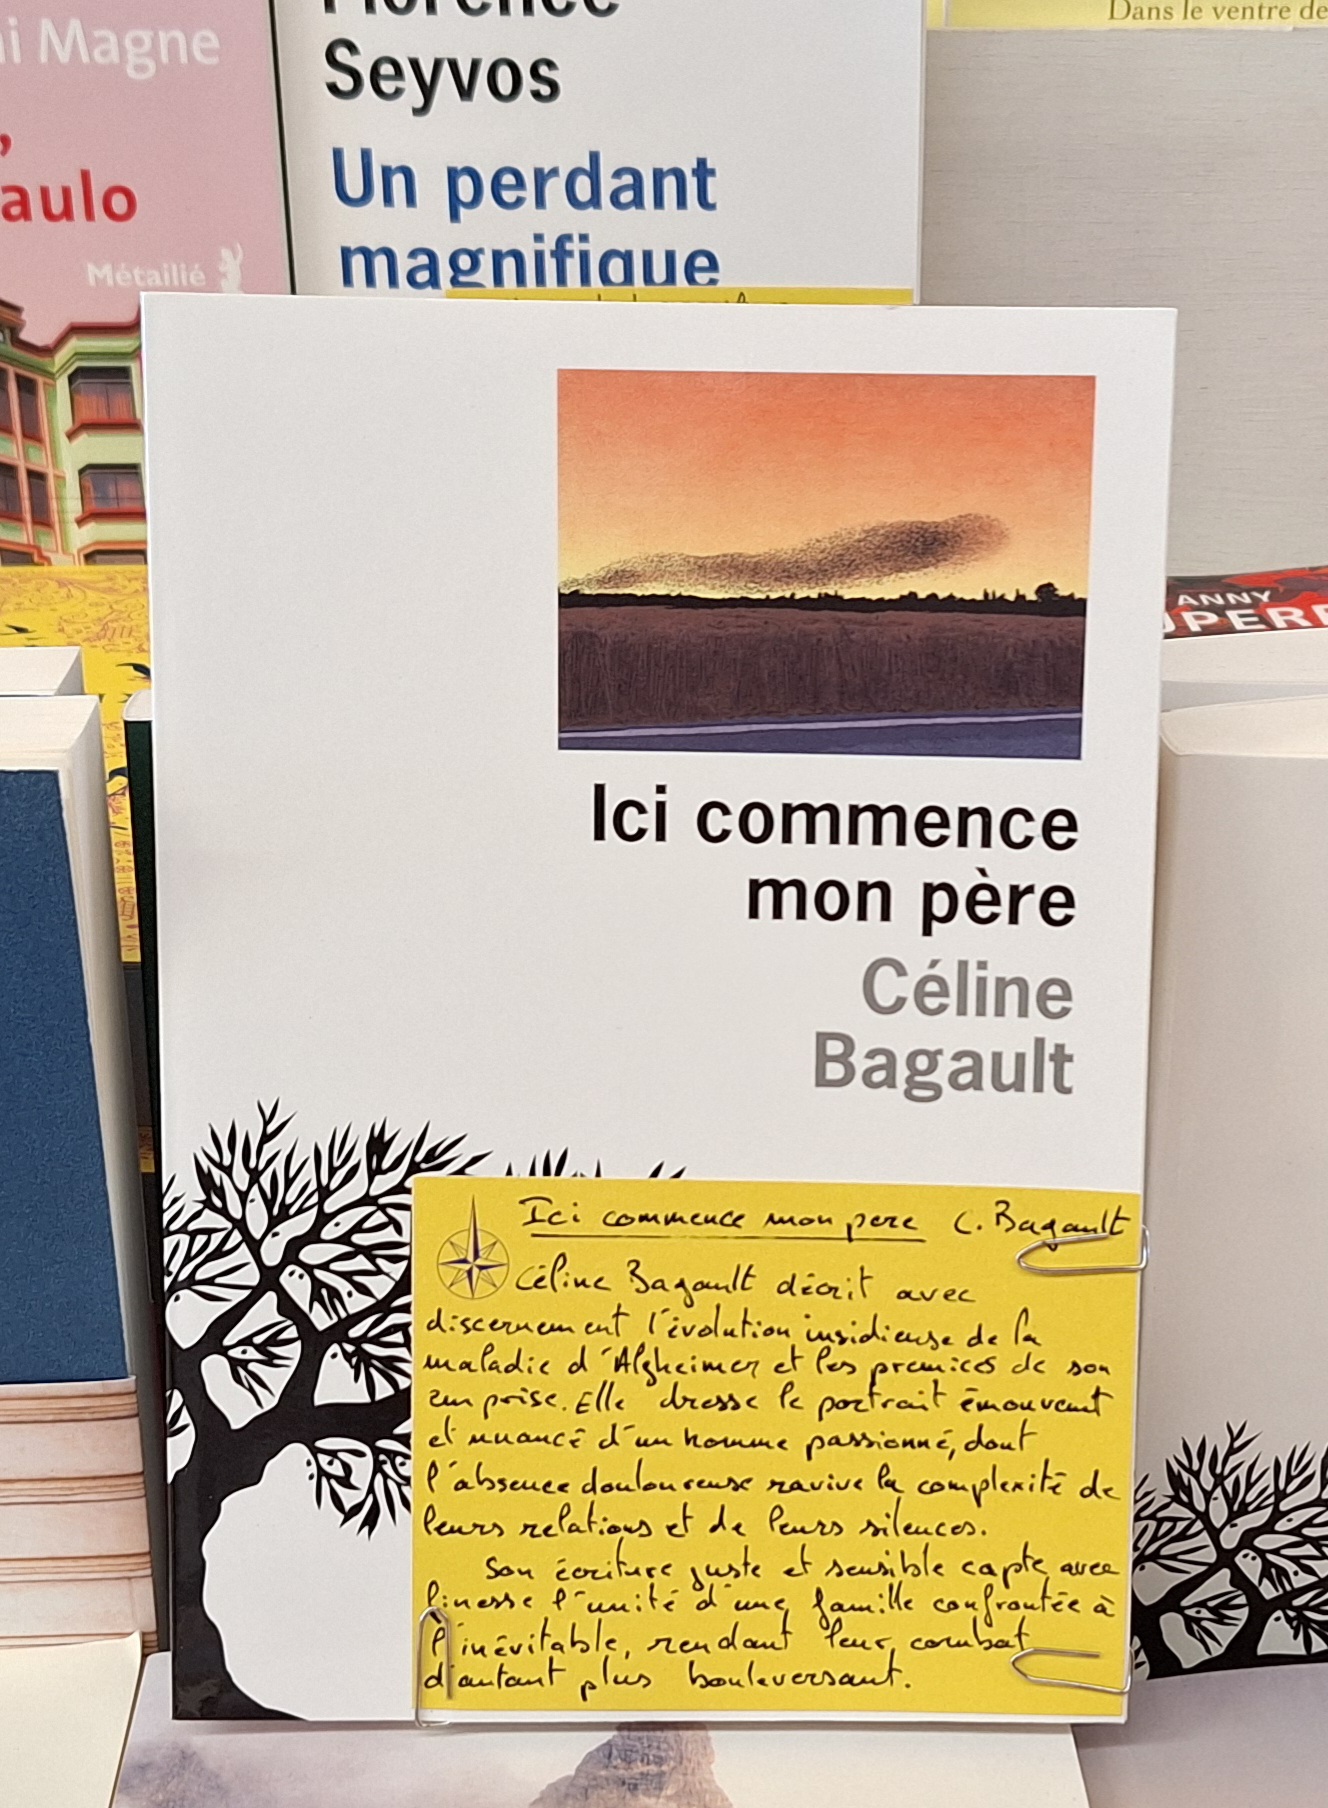 ni Magne
aulo
Métailié
Florence
Seyvos
Un perdant
magnifique
Dans le ventre de
ANNY
UPER
Ici commence
mon père
Céline
Bagault
Ici commence mon pere C. Bagault
Céline Bagault décrit avec
discernement l'évolution insidieuse de la
maladie d'Alzheimer et les premices de son
emprise. Elle dresse le portrait émouvant
et nuancé d'un homme passionné, dont
l'absence douloureuse ravive la complexité de
leurs relations et de leurs silences.
Son écriture juste et sensible capte avec
finesse l'unité d'une famille confrontée à
l'inévitable, rendant leur combat
d'autant plus bouleversant.